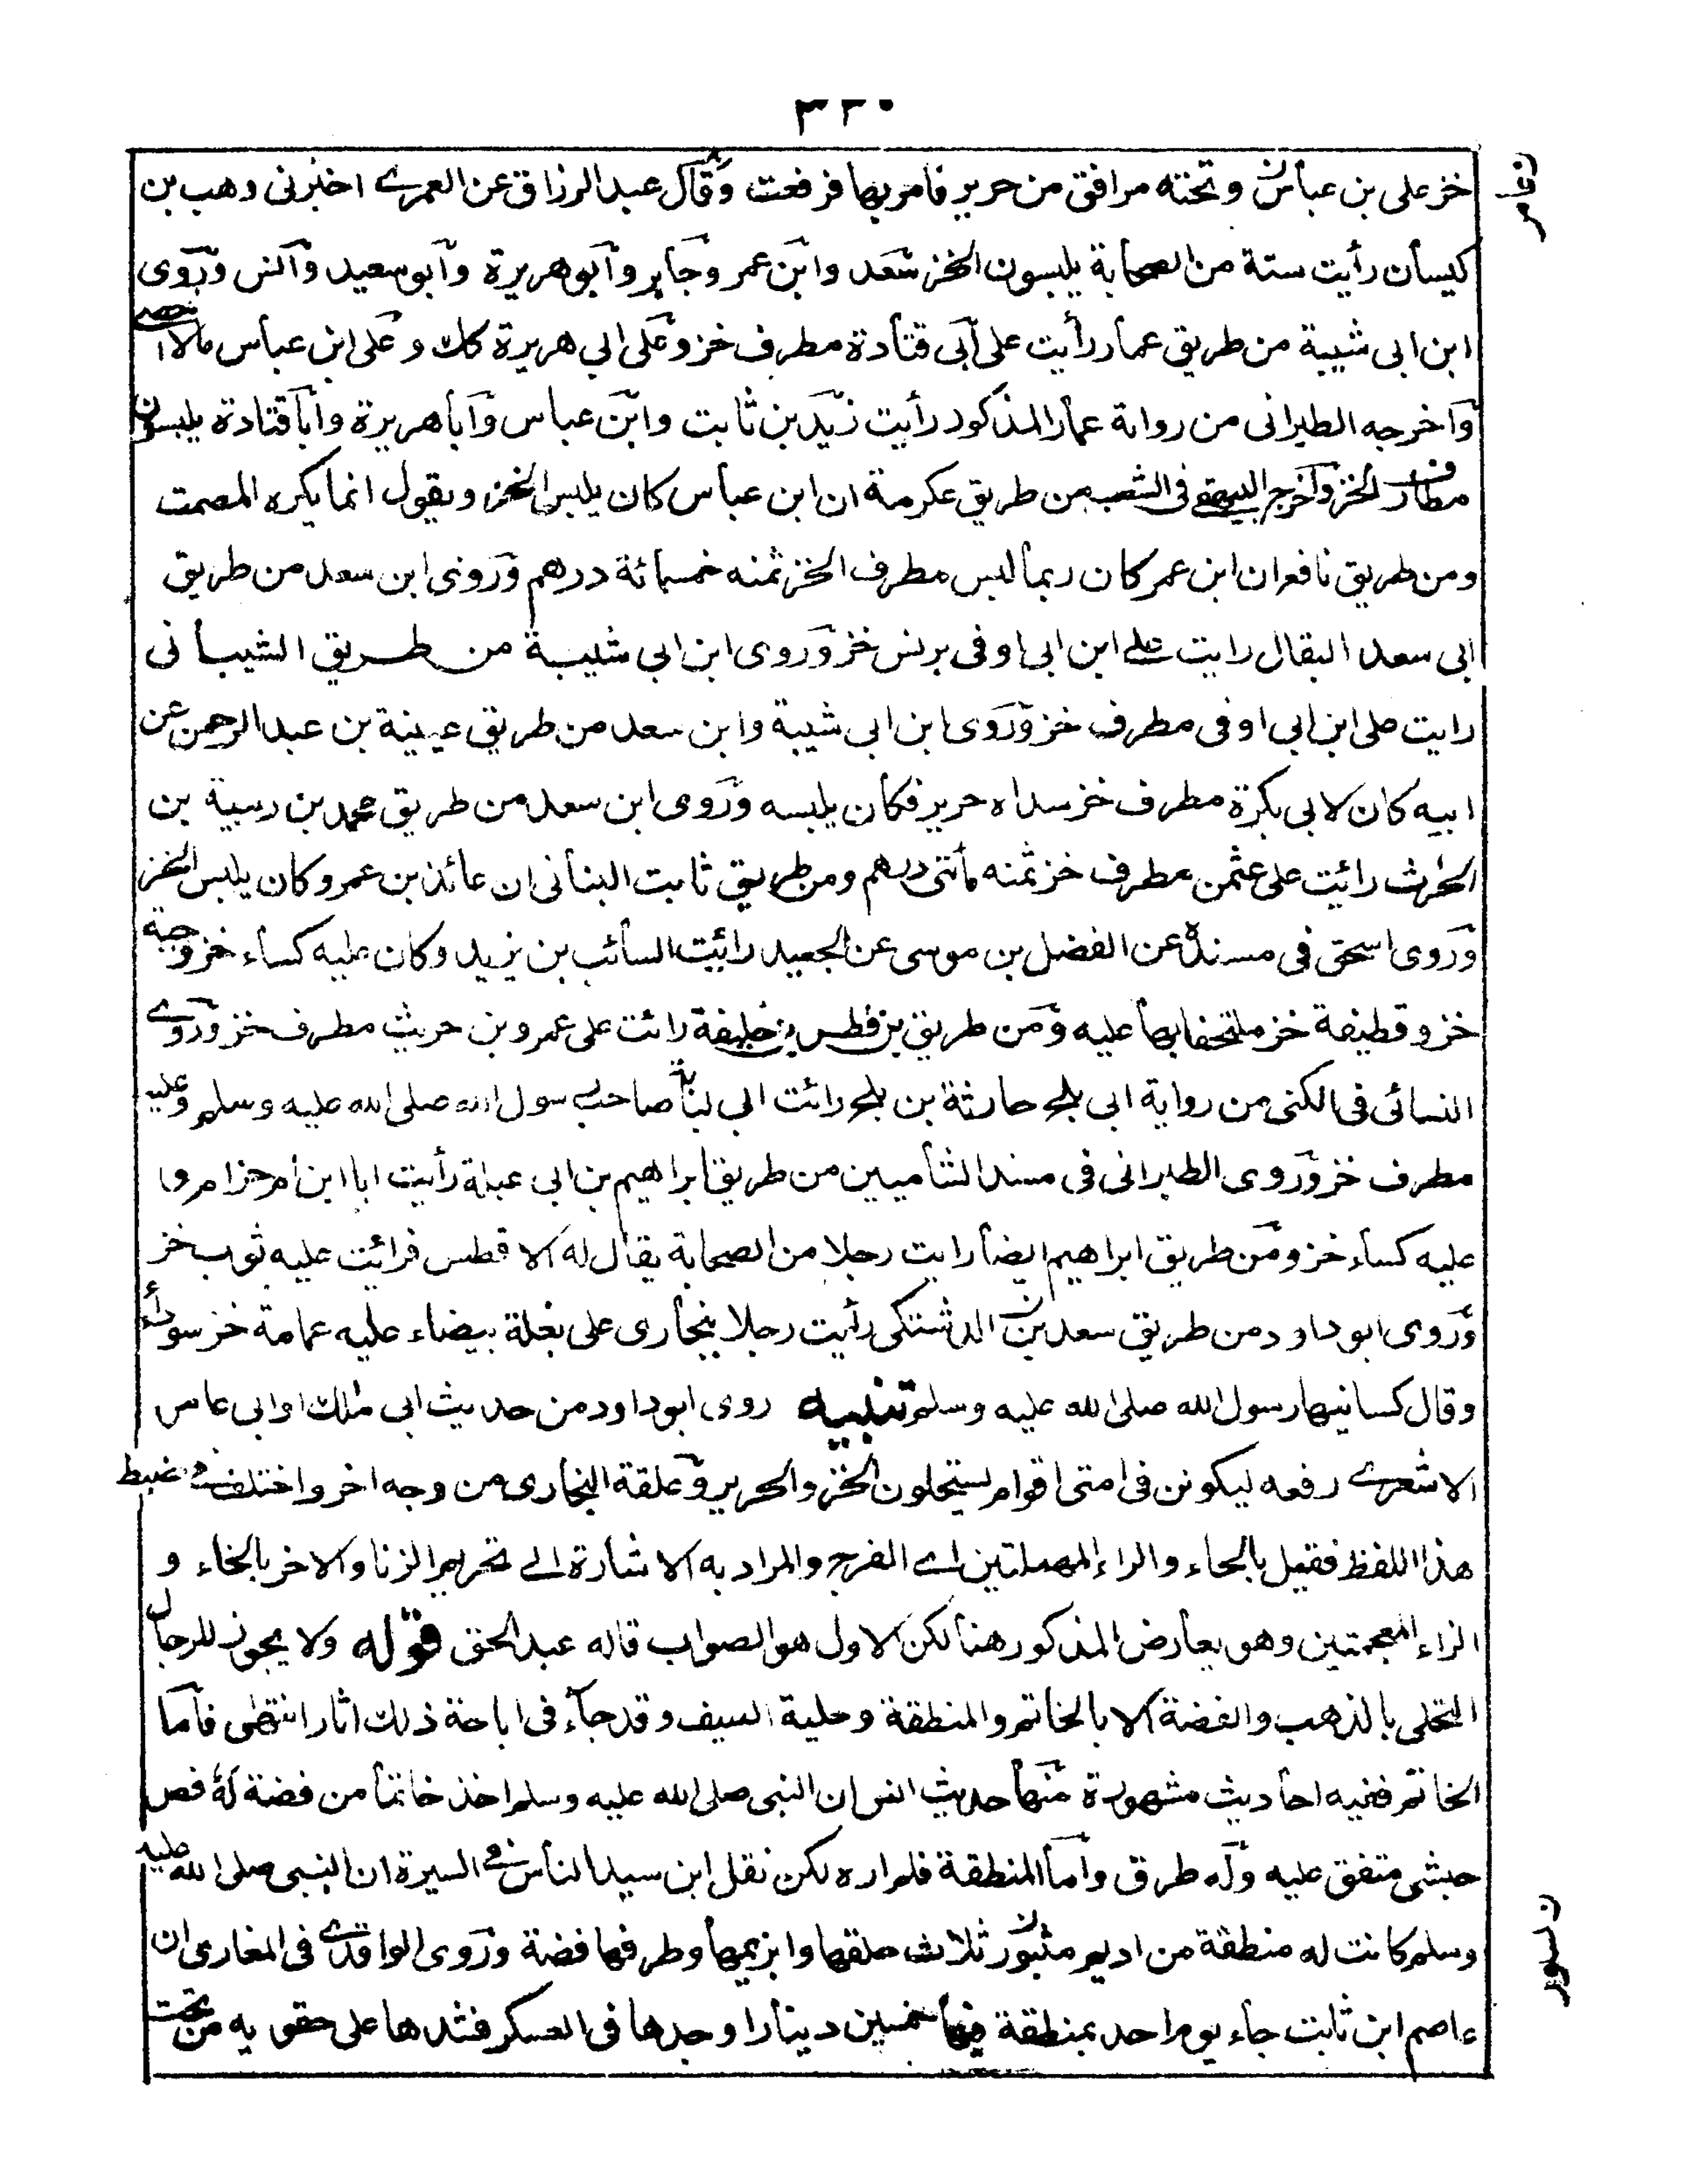 ٣٣٠
خز على بن عباس وتحته مرافق من حرير فامر بها فرفعت وقال عبد الرزاق عن العمرے اخبرنى وهب بن
كيسان رأيت ستة من الصحابة يلبسون الخز سعد وابن عمر وجابر وابو هريرة وابو سعيد وانس وروى
ابن ابى شيبة من طريق عمار رأيت على ابى قتادة مطرف خز وعلى ابى هريرة كذلك وعلى ابن عباس مالا احصے
واخرجه الطبرانى من رواية عمار المذكور رأيت زيد بن ثابت وابن عباس وابا هريرة وابا قتادة يلبسون
مطارف الخز واخرج البيهقے فى الشعب من طريق عكرمة ان ابن عباس كان يلبس الخز ويقول انما يكره المصمت
ومن طريق نافع ان ابن عمر كان ربما لبس مطرف الخز ثمنه خمسمائة درهم وروى ابن سعد من طريق
ابى سعد البقال رايت علے ابن ابى اوفى برنس خز وروى ابن ابى شيبة من طريق الشيبانى
رايت على ابن ابى اوفى مطرف خز وروى ابن ابى شيبة وابن سعد من طريق عيينة بن عبد الرحمن عن
ابيه كان لابى بكرة مطرف خز سداه حرير فكان يلبسه وروى ابن سعد من طريق محمد بن ربيعة بن
الحرث رائيت على عثمن مطرف خز ثمنه مأتى درهم ومن طريق ثابت البنانى ان عائذ بن عمرو كان يلبس الخز
وروى اسحق فى مسنده عن الفضل بن موسى عن الجعيد رائيت السائب بن يزيد وكان عليه كساء خز وجبة
خز وقطيفة خز ملتحفا بها عليه ومن طريق بن فطر بن خليفة رائت على عمرو بن حريث مطرف خز وروے
النسائى فى الكنى من رواية ابى بلج حارثة بن بلج رائت ابى لبابة صاحب رسول الله صلى الله عليه وسلم وعليه
مطرف خز وروى الطبرانى فى مسند الشاميين من طريق ابراهيم بن ابى عبلة رأيت ابا ابن ام حزام و
عليه كساء خز ومن طريق ابراهيم ايضا رايت رجلا من الصحابة يقال له الا قطس فرائيت عليه ثوب خز
وروى ابو داود من طريق سعد بن الدشتكى رأيت رجلا ببخارى على بغلة بيضاء عليه عمامة خز سوداء
وقال كسانيها رسول الله صلى الله عليه وسلم تنبيه روى ابو داود من حديث ابى ملك او ابى عامر
الاشعرے رفعه ليكونن فى امتى اقوام يستحلون الخز والحرير وعلقة البخارى من وجه اخر واختلف فے ضبط
هذا اللفظ فقيل بالحاء والراء المهملتين اے الفرج والمراد به الاشارة الے تحريم الزنا والاخر بالخاء و
الزاء المعجمتين وهو يعارض المذكور هنا لكن الاول هو الصواب قاله عبد الحق قوله ولا يجوز للرجال
التحلى بالذهب والفضة الا بالخاتم والمنطقة وحلية السيف وقد جاء فى اباحة ذلك اثار انتهى فاما
الخاتم ففيه احاديث مشهورة منها حديث انس ان النبى صلى الله عليه وسلم اخذ خاتما من فضة له فص
حبشى متفق عليه وله طرق واما المنطقة فلم اره لكن نقل ابن سيد الناس فے السيرة ان النبى صلى الله عليه
وسلم كانت له منطقة من اديم ثلاث حلقها وابزيمها وطرفها فضة وروى الواقدے فى المغازى ان
عاصم ابن ثابت جاء يوم احد بمنطقة فيها خمسين دينارا وجدها فى العسكر فشدها على حقويه من تحت